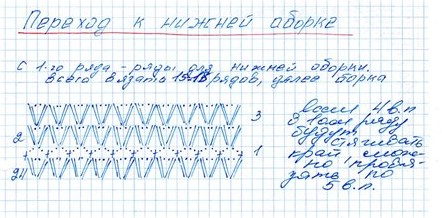 Переход к нижней оборке
С 1-го ряда - ряды для нижней оборки.
всего вязать 15-18 рядов, далее борка
если 4 в.п
в 1-ом ряду
будут
стягивать
край, можно
провязать по
5 в.п.
3
2
1
24